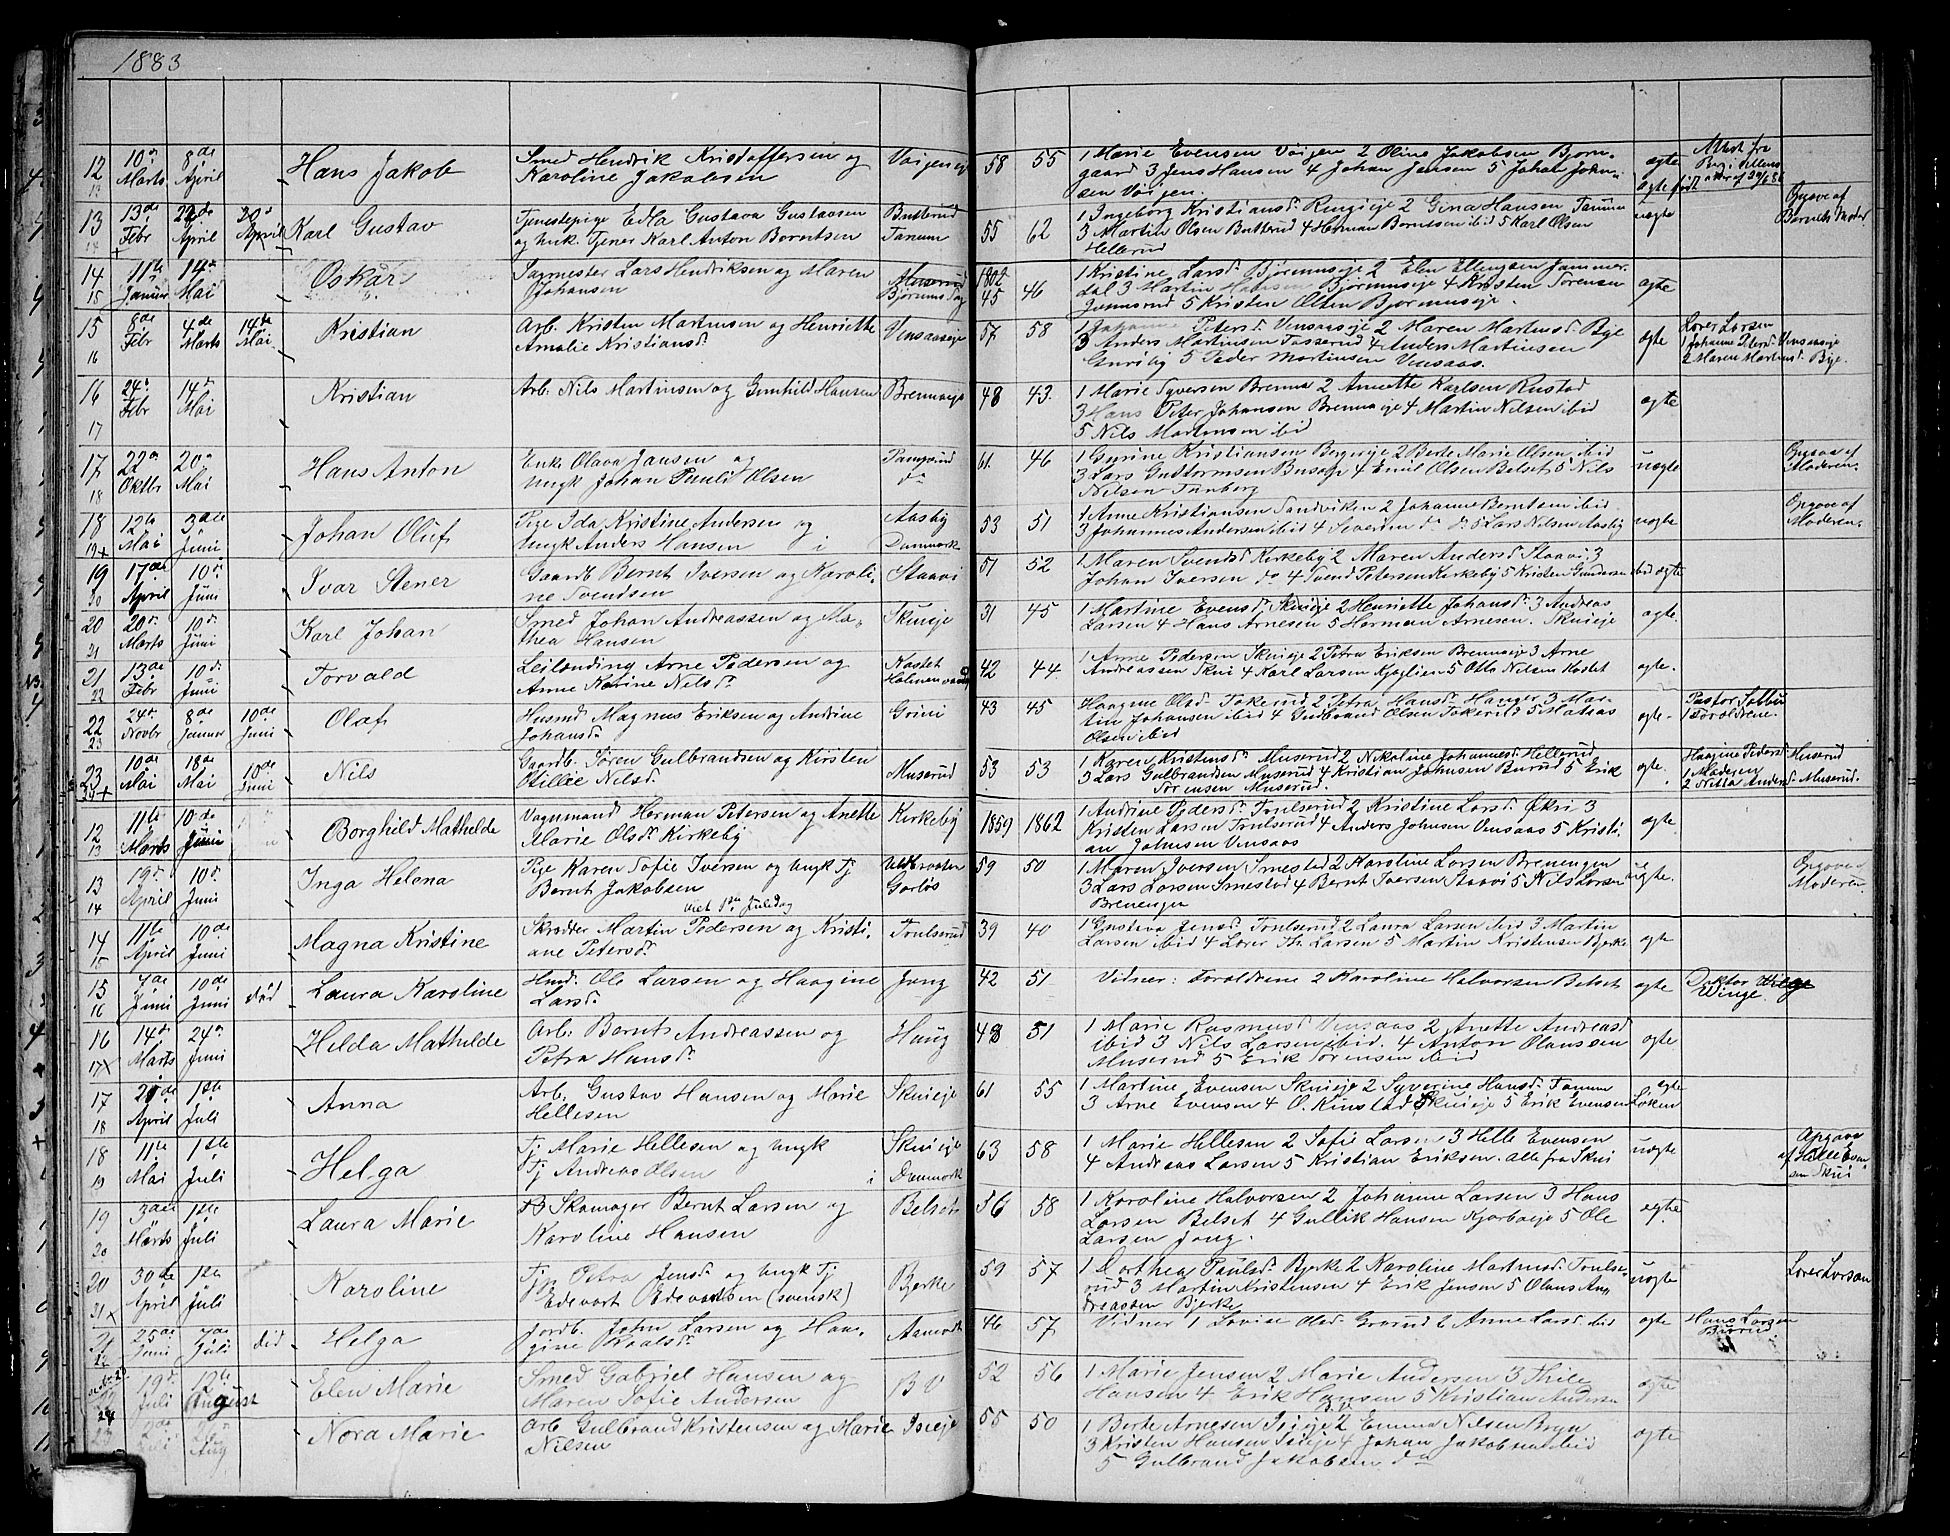 1883
12 10de 8de Hans Jakob Smed Hendrik Kristoffersen og Vøigeneje 58 55 1 Marie Evensen Vøigen 2 Oline Jakobsen Bjørn- ægte Attest fra
13 Marts April Karoline Jakobsen gaard 3 Jens Hansen 4 Johan Jensen 5 Johan Johan- ægte født
sen Vøigen.
13 13de 22de 20de Karl Gustav Tjenestepige Edla Gustava Gustavsen Butterud 55 62 1 Ingeborg Kristiansd. Ringieje 2 Gina Hansen Tanum uægte Opgave af
14 Febr April April og Ungk. Tjener Karl Anton Berntsen Tanum 3 Martin Olsen Butterud 4 Herman Berntsen ibid 5 Karl Olsen Barnets Moder
+ Hellerud
14 11te 14de Oskar Sagmester Lars Hendriksen og Maren Muserud 1802 46 1 Kristine Larsd. Bjørumseje 2 Elen Ellingsen Jammer- ægte
15 Januar Mai Johansen Bjørums Sag 45 dal 3 Martin Hansen Bjørumseje 4 Kristen Sørensen
Jonsrud 5 Kristen Olsen Bjørumseje.
15 8de 4de 14de Kristian Arb. Kristen Martinsen og Henriette Vensaaseje 57 58 1 Johanne Petersd. Vensaaseje 2 Maren Martinsd. Bye ægte Lærer Larsen
16 Febr Marts Mai Amalie Kristiansd. 3 Anders Martinsen Tasserud 4 Anders Martinsen 1 Johanne Petersd. Vensaaseje
5 Peder Martinsen Vensaas. 2 Maren Martinsd. Bye.
16 24de 14de Kristian Arb. Nils Martinsen og Gunhild Hansen Brennaeje 48 43. 1 Marie Syversen Brenna 2 Anette Karlsen Rustad ægte
17 Febr Mai 3 Hans Peter Johansen Brennaeje 4 Martin Nilsen ibid
5 Nils Martinsen ibid
17 22de 20de Hans Anton Enke Olava Jansen og 61. 46 1 Gurine Kristiansen Bergseje 2 Berte Marie Olsen ibid uægte Opgave af
18 Oktbr Mai Ungk Johan Pauli Olsen do 3 Lars Guttormsen 4 Emil Olsen Belset 5 Nils Moderen.
Nilsen Tanberg
18 12te 3die Johan Oluf Pige Ida Kristine Andersen og Aasby 53 51 1 Anne Kristiansen Sandviken 2 Johanne Berntsen ibid uægte Opgave af
19+ Mai Juni Ungk Anders Hansen i Danmark 3 Johannes Andersen ibid 4 Severin do do 5 Lars Nilsen Aasby Moderen.
19 17de 10de Ivar Stener Gaardb Bernt Iversen og Karoli- Staavi 51 52 1 Maren Svendsd Kirkeby 2 Maren Andersd Staavi 3
20 April Juni ne Svendsen Johan Iversen do 4 Svend Petersen Kirkeby 5 Kristen Gundersen ibid ægte
20 20de 10de Karl Johan Smed Johan Andreassen og Ma- Skuieje 31 45 1 Martine Evensd. Skuieje 2 Henriette Johansd. 3 Andreas ægte.
21 Marts Juni thea Hansen Larsen 4 Hans Arnesen 5 Herman Arnesen. Skuieje
21 13de 10de Torvald Leilending Arne Pedersen og Kastet 42 44 1 Arne Pedersen Skuieje 2 Petra Eriksen Brennaeje 3 Arne ægte.
22 Febr Juni Anne Karine Nilsd. Andreassen Skui 4 Karl Larsen Kjaglien 5 Otto Nilsen Kastet
22 24de 8de 10de Olaf Husmd Magnus Eriksen og Andrine Grini 43 45 Haagine Olsd. Tokerud 2 Petra Hansd. Hauger 3 Mar- ægte. Pastor
23 Novbr Januar Juni Johansd. tin Johansen ibid 4 Gulbrand Olsen Tokerud 5 Matias 1 Forældrene
Olsen ibid
23 10de 18de 10de Nils Gaardb. Søren Gulbrandsen og Kirsten Muserud 53 53 1 Karen Kristensd. Muserud 2 Nikoline Johannesd. Hellerud ægte. Haagine Pedersd. Muserud
24+ Mai Mai Juni Otillie Nilsd. 3 Lars Gulbrandsen Muserud 4 Kristian Johnsen Burud 5 Erik 1 Moderen
Sørensen Muserud. 2 Netta Andersd. Muserud.
12 11te 10de Borghild Mathilde Vognmand Herman Petersen og Anette Kirkeby 1859 1862 1 Andrine Pedersd. Toulserud 2 Kristine Larsd. Økri 3 ægte.
13 Marts Juni Marie Olsd. Kirkeby Kristen Larsen Toulserud 4 Anders Johnsen Vensaas 5 Kristi-
an Johnsen Vensaas
13 19de 10de Inga Helena Pige Karen Sofie Iversen og Ungk Tj 59 50 1 Maren Iversen Smestad 2 Karoline Larsen Brenengen uægte. Opgave af
14 April Juni Bernt Jakobsen Gorløs 3 Lars Larsen Smestad 4 Bernt Iversen Staavi 5 Nils Larsen Moderen.
viet 1ste Juledag Brenengen
14 11te 10de Magna Kristine Skrædder Martin Pedersen og Kristi- Toulserud 39 40 1 Gustava Jensd. Toulserud 2 Laura Larsen ibid 3 Martin ægte
15 April Juni ane Petersd. Larsen ibid 4 Lærer Th. Larsen 5 Martin Kristensen Bjerke
15 7de 10de død Laura Karoline Husmd. Ole Larsen og Haagine Jong 42 51 Vidner: Forældrene 2 Karoline Halvorsen Belset ægte Doktor
16 Juni Juni Larsd. Winge.
16 14de 24de Helda Mathilde Arb. Bernt Andreassen og Haug 48 51 1 Marie Rasmusd Vensaas 2 Anette Andreasd ægte
17+ Marts Juni Petra Hansd. ibid 3 Nils Larsen ibid. 4 Anton Olaussen
Muserud 5 Erik Sørensen ibid
17 21de 1ste Anna Arb. Gustav Hansen og Marie Skuieje 61 55 1 Martine Evensen Skuieje 2 Syverine Hansd. Tanum ægte
18 April Juli Hellesen 3 Arne Evensen 4 O. Ringstad, Skuieje 5 Erik Evensen Løken
18 11te 1ste Helga Tj Marie Hellesen og Ungk Skuieje 63 58 1 Marie Hellesen 2 Sofie Larsen 3 Helle Evensen uægte Opgave
19 Mai Juli Tj Andreas Olsen i Danmark 4 Andreas Larsen 5 Kristian Eriksen. Alle fra Skui af Helle Even-
sen Skui
19 3die 1ste Laura Marie Skomager Bernt Larsen og Belset 56 58 1 Karoline Halvorsen 2 Johanne Larsen 3 Hans ægte
20 Marts Juli Karoline Hansen Larsen Belset 4 Gullik Hansen Kjørboeje 5 Ole
Larsen Jong.
20 30te 1ste Karoline Tj Petra Jensd. og Ungk Tj Bjerke 59 57 1 Dorthea Paulsd. Bjerke 2 Karoline Martinsd. Toulse- uægte Lærer Larsen
21+ April Juli Edevart Edevartsen (svensk) rud 3 Martin Kristensen 4 Erik Jensen 5 Olaus An-
dreassen Bjerke
21 25de 7de død Helga Jordb. John Larsen og Haa- Aamodt 46 57 Vidner 1 Lovise Olsd. Grorud 2 Anne Larsd. ibid ægte Hans Larsen
22 Juni Juli gine Paalsd. Burud
22 19de 12te Elen Marie Smed Gabriel Hansen og By 52 56 1 Marie Jensen 2 Marie Andersen 3 Thile ægte
Juli August Maren Sofie Andersen Hansen 4 Erik Hansen 5 Kristian Andersen
24 Nora Marie Arb Gulbrand Kristensen og Marie Isieje 55 50 1 Berte Arnesen Isieje 2 Emma Nilsen Bryn ægte
Aug Nilsen 3 Kristen Hansen Isieje 4 Johan Jakobsen ibid
5 Gulbrand Jakobsen do